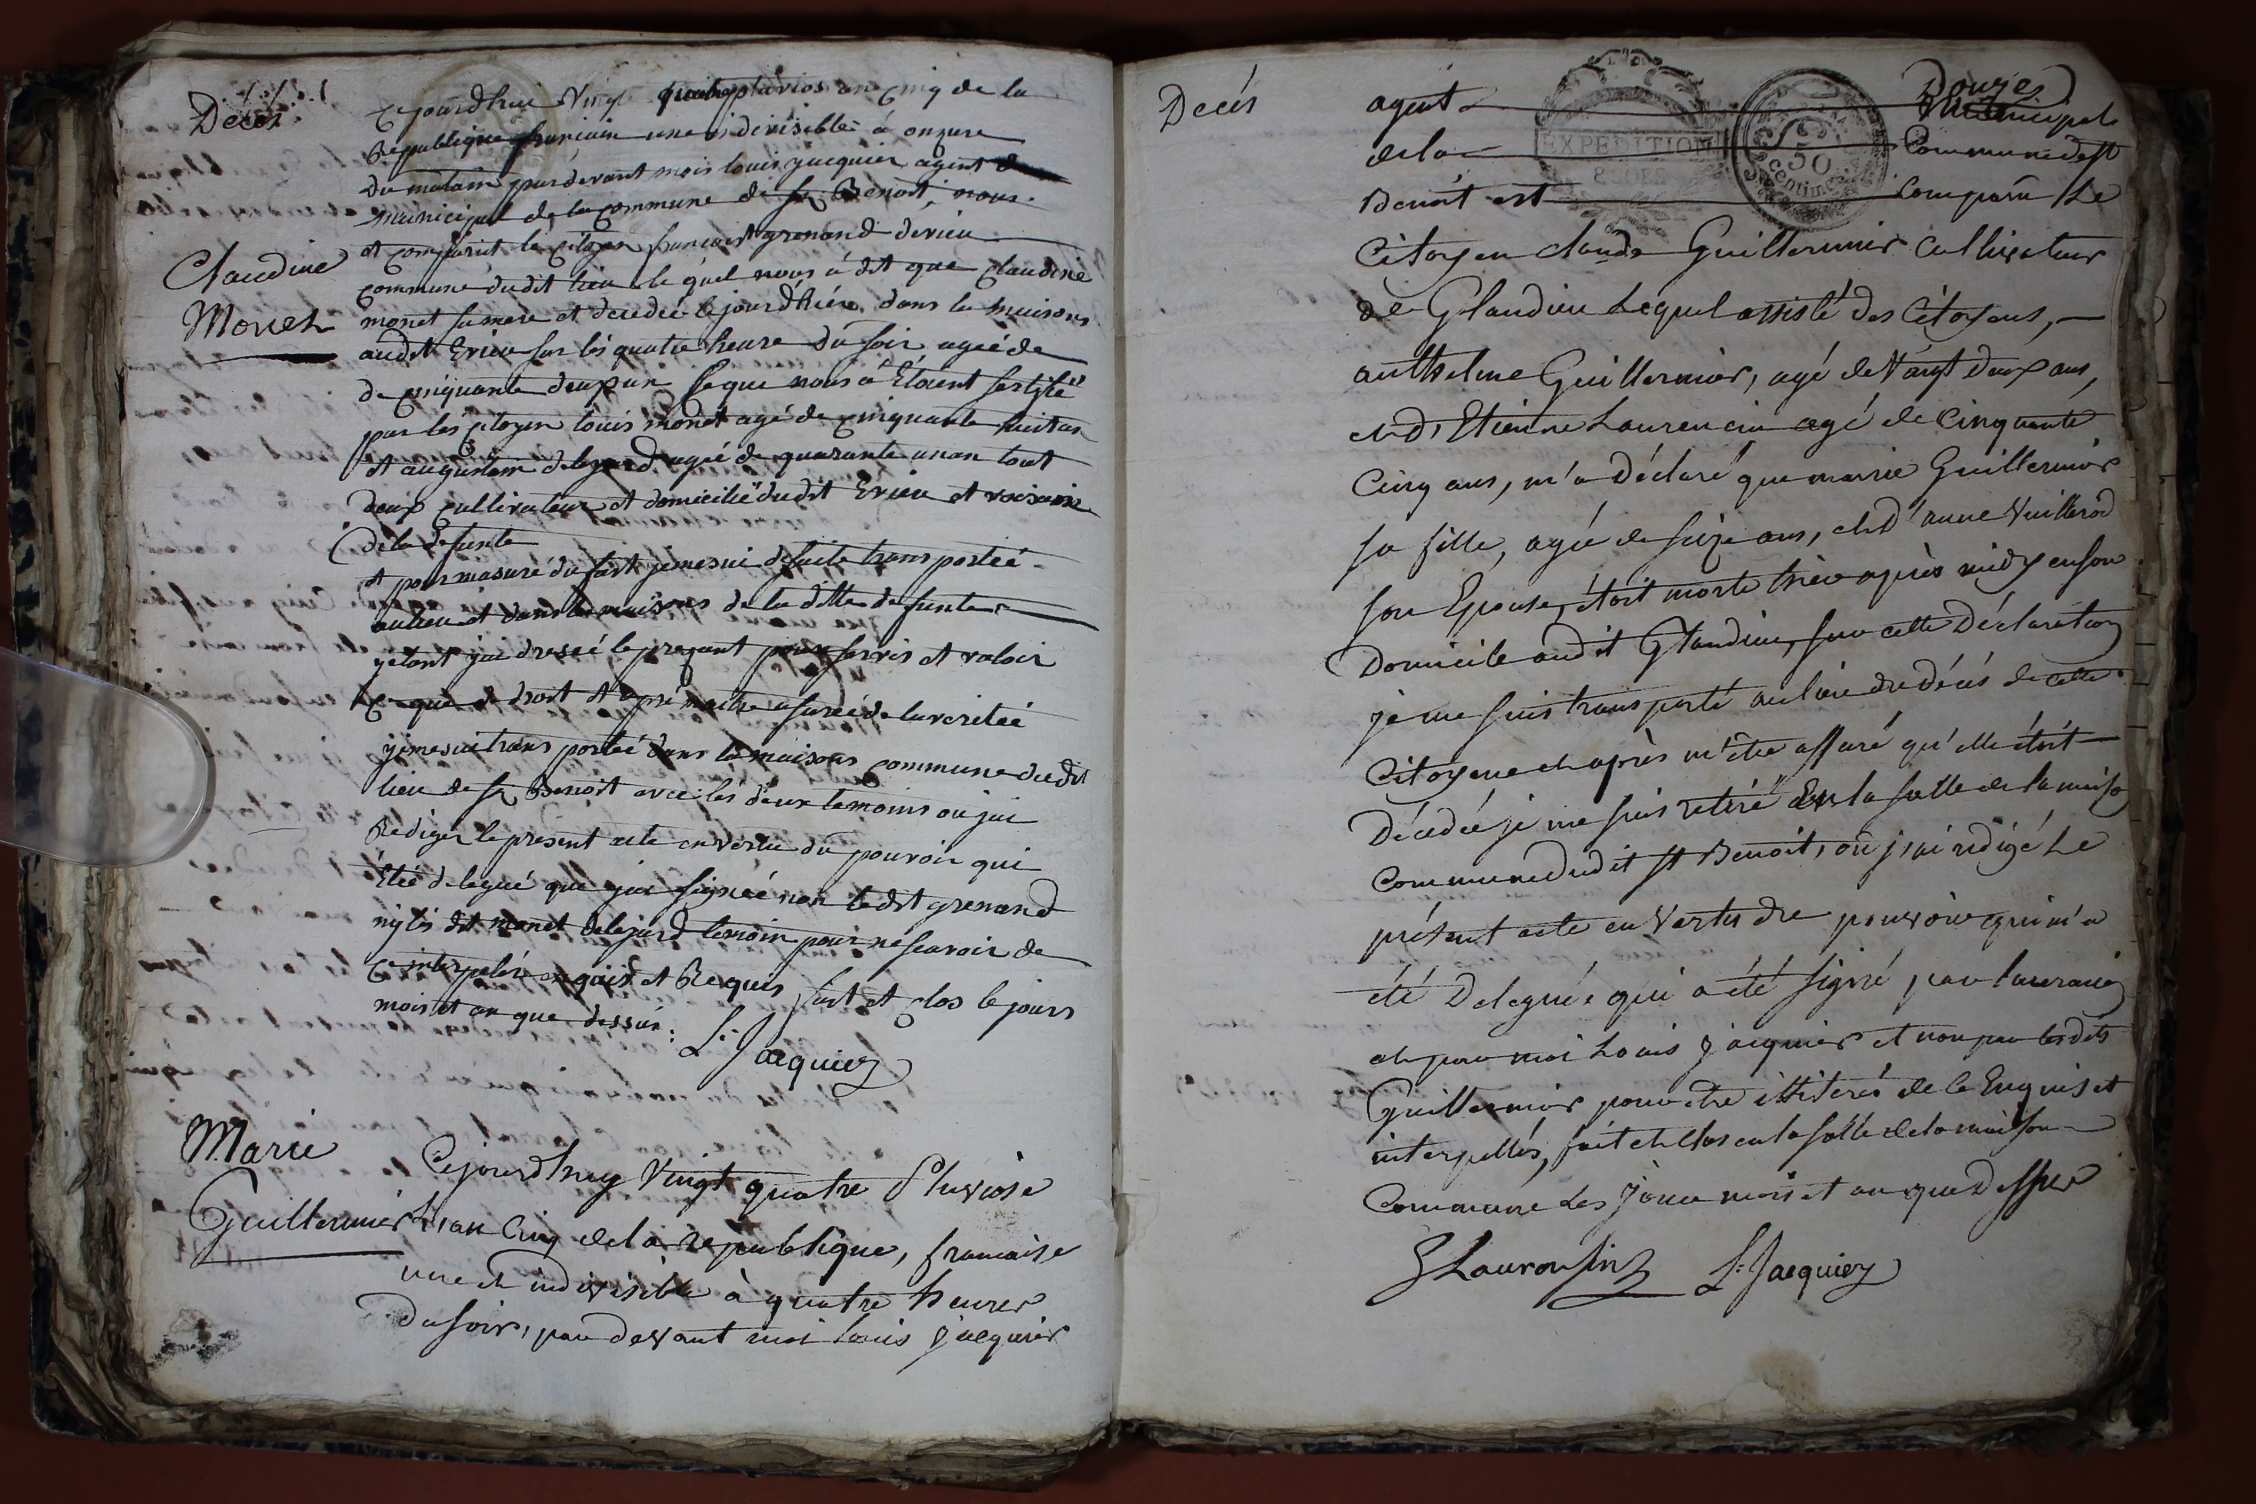 Decès
Claudine
Monet
Cejourdhui Vingt quatre pluvios an cinq de la
Republique francain une indivisible à onzure
du matain pardevant mois louis jacquier agent
municipal de la commune de st Benoit, nous
et comparut le citoyen francois grenand derieu
commune dudit lieu le quel nous à dit que Claudine
monet sa mere et decedée le jour d'hiére dans la maisons
audit Erieu sur les quatre heure du soir agée de
de cinquante deux an ce que nous à Etaient sertifié
par les citoyen louis monet agé de cinquante huit an
et augustain delejard agée de quarante un an tout
deux cultivateur et domicilié dudit Erieu et voisain
de la defunte
et pour masuré du fait jemesui desuite transportée
au lieu et dans la maisons de la ditte defunte
yetant jai dresée le prezant pour servir et valoir
ce que de droit et apré maitre asurée de la veritée
jemesui transportée dans la maisons commune dudit
lieu de st Benoit avec les deux temoins ou jai
Rediger le present acte en vertu du pouvoir qui
Etée delegué que jai signée non ledit grenand
ny les dit monet delejard temoin pour ne scavoir de
ce interpelés en quis et Requis fait et clos le jours
mois et an que dessus.
L. Jacquier
Marie
Guillermier
Cejourdhuy Vingt quatre Pluviose
l'an Cinq de la republique, francaise
une et indivisible à quatre heures
du soir, par devant moi louis jacquier
Decés
Douze
agent Municipale
de la Commune de st
EXPEDITION
50
Centimes
Benoit est Comparu Le
Citoyen claude Guillermier Cultivateur
de Glandieu Lequel assisté des Citoyens,
anthelme Guillermier, agé de Vaingt deux ans,
et d'Etienne Laurencin agé de Cinquante
Cinq ans, m'a Déclaré que marie Guillermier
sa fille, agée de seize ans, et d'anne Vuillerod
son Epouse, étoit morte hièr après midy en son
Domicile audit Glandieu, sur cette Déclaration
je me suis transporté au lieu du décés de cette
Citoyene et après m'être assuré qu'elle étoit
Décedée je me suis retiré En la salle de la maison
Commune dudit st Benoit, où j'ai rédigé Le
présent acte en Vertu du pouvoir qui m'a
été Delegué, qui a été signé, par laurancin
et par moi Louis jacquier et non par lesdits
Guillermier pour être illiterés de ce Enquis et
interpellés, fait et Clos en la salle de la maison
Commune Les jour mois et an que Dessus
E Lauronsin L. Jacquier